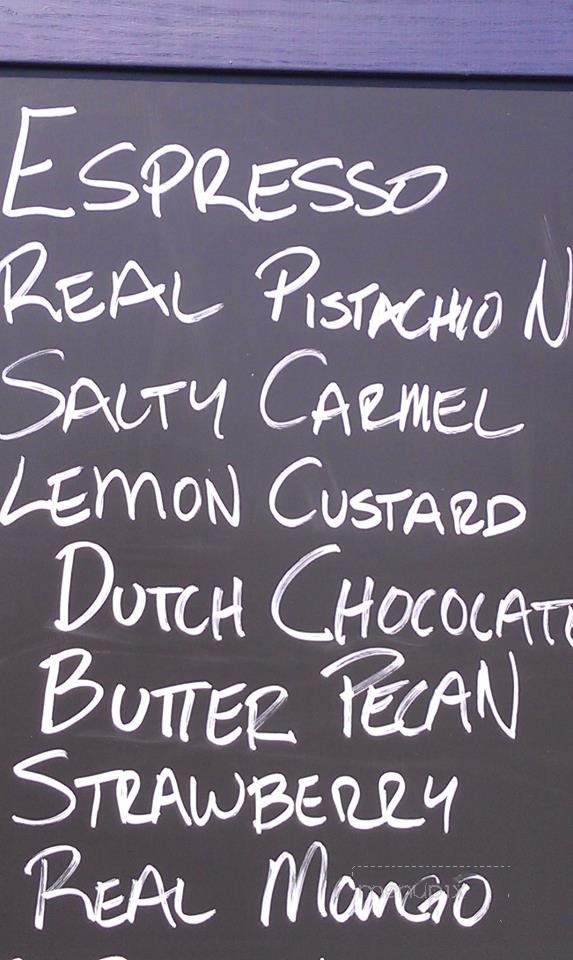 ESPRESSO
REAL PISTACHIO N
SALTY CARMEL
LEMON CUSTARD
DUTCH CHOCOLATE
BUTTER PECAN
STRAWBERRY
REAL MANGO
menupix